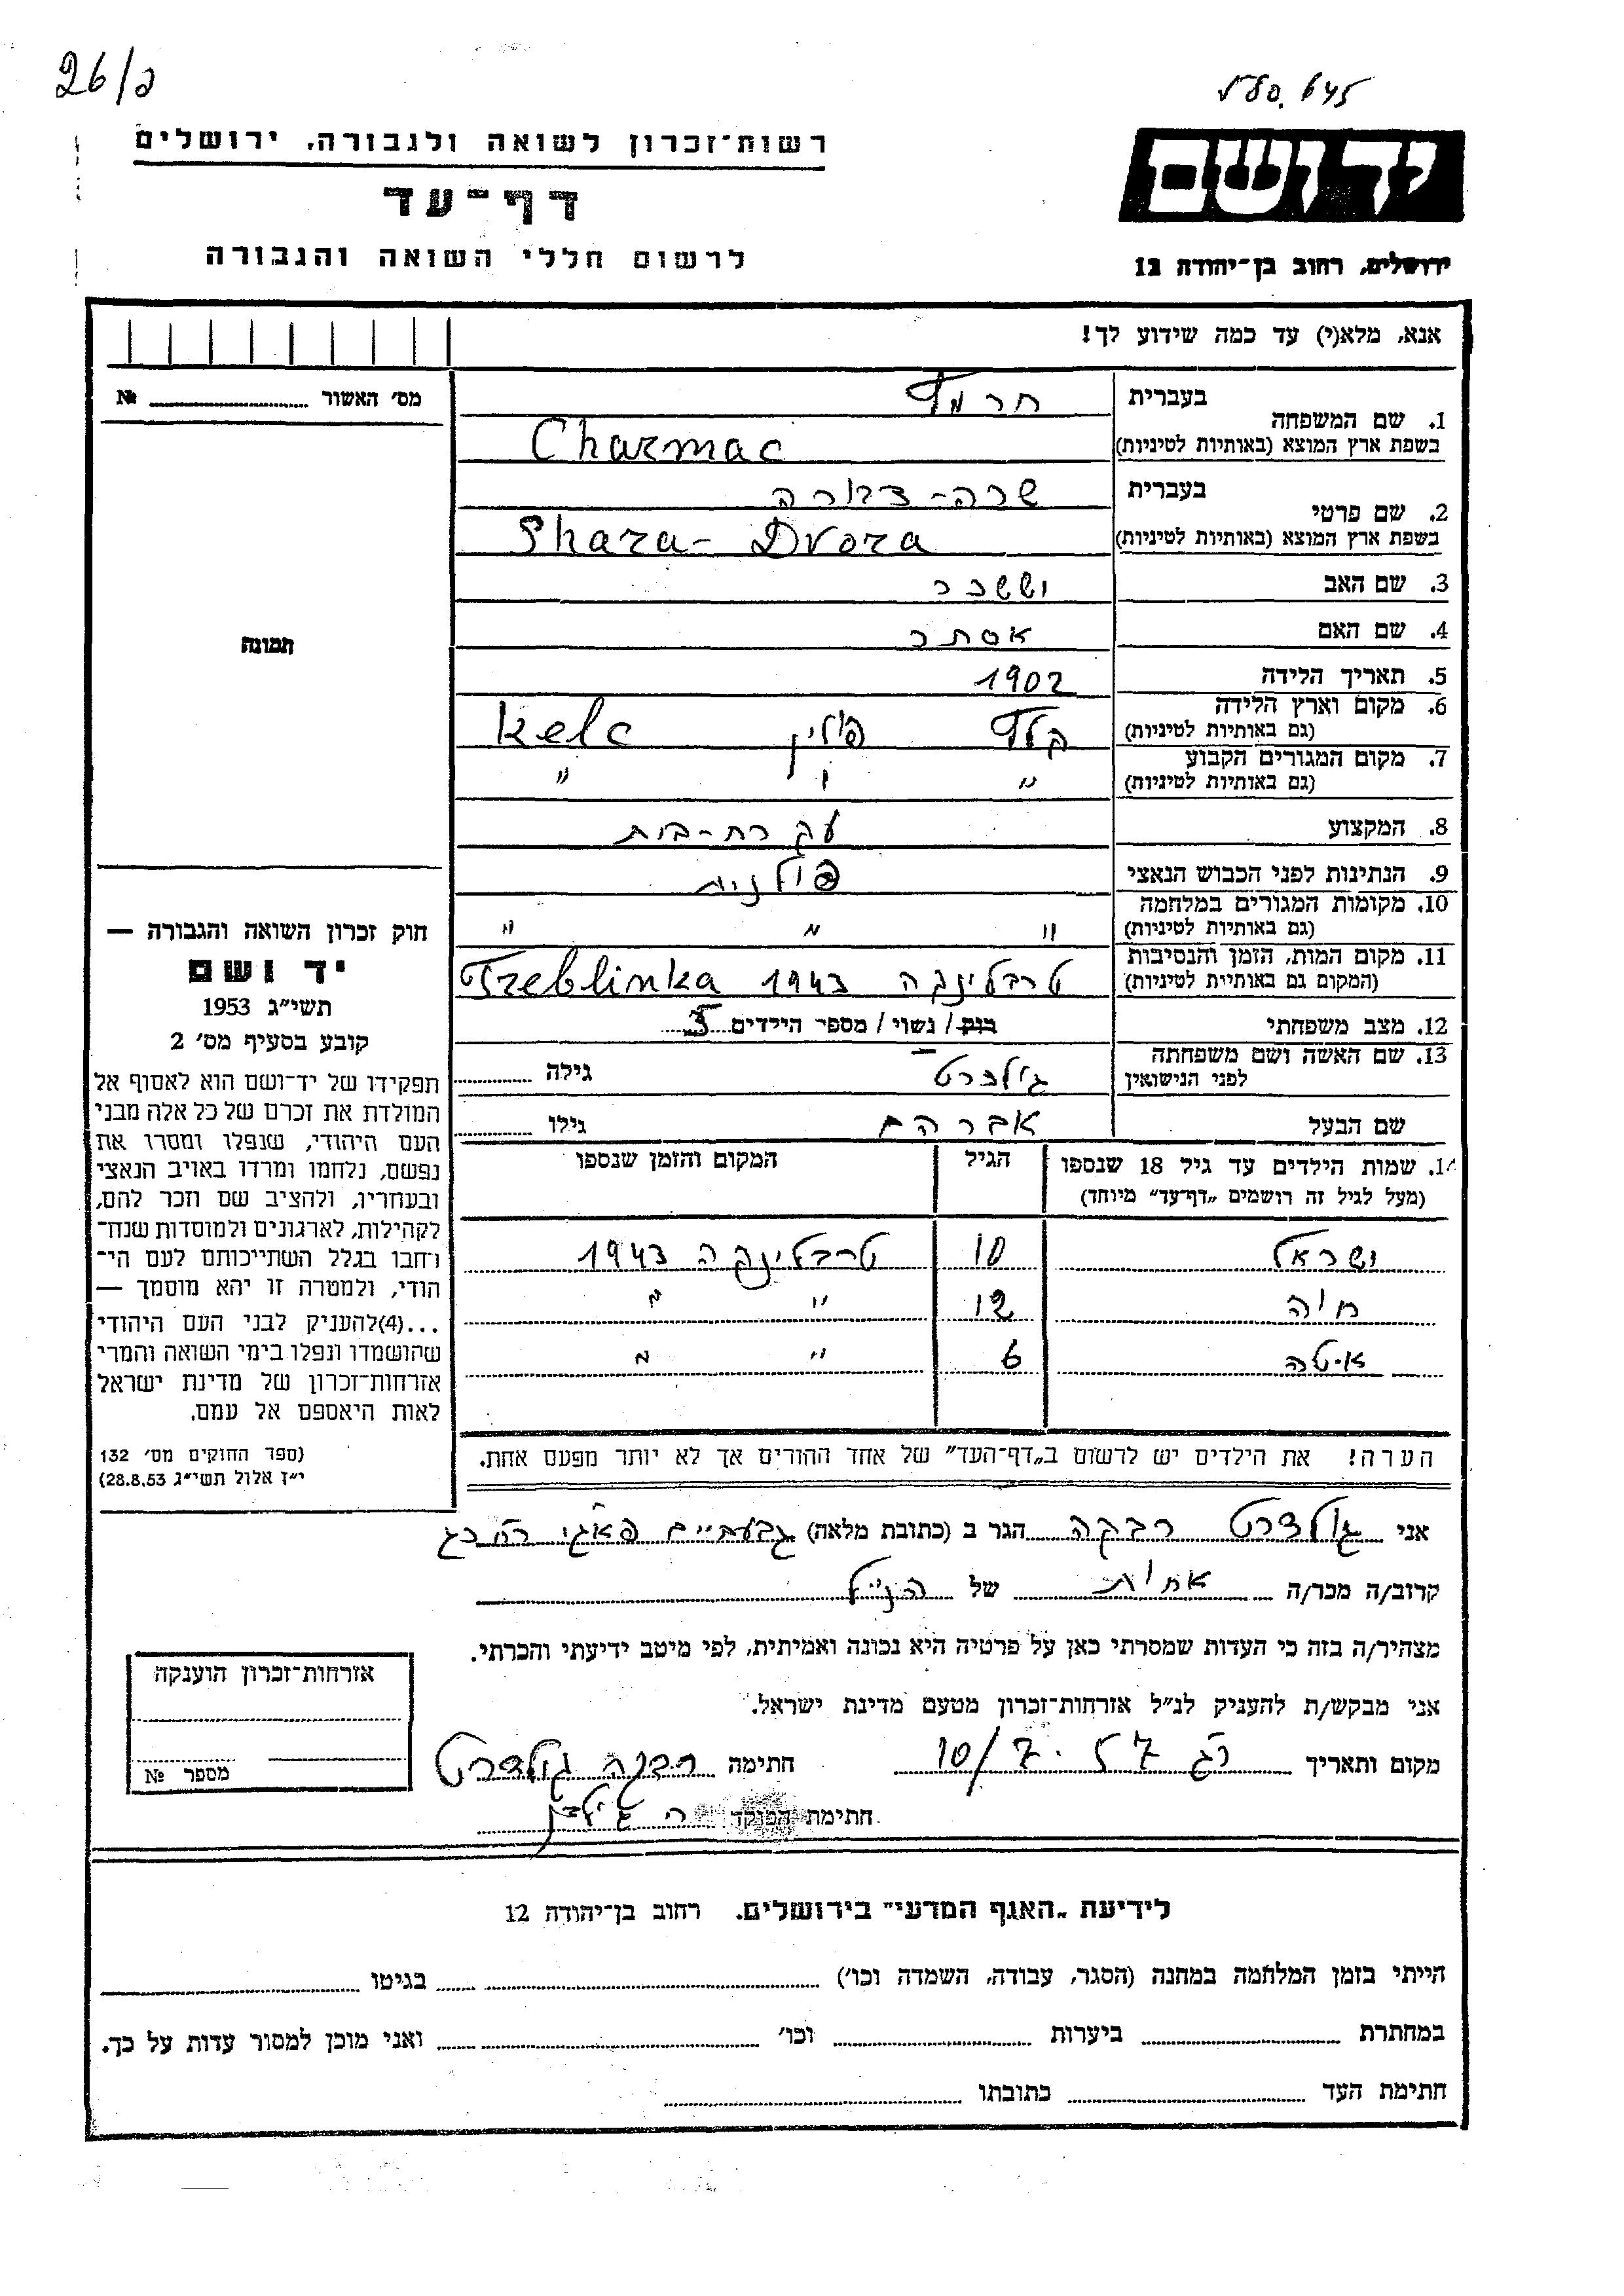 26/כ
645
רשות־זכרון לשואה ולגבורה, ירושלים
דף־עד
לרשום חללי השואה והגבורה
יד ושם
ירושלים, רחוב בן־יהודה 12
אנא, מלא(י) עד כמה שידוע לך!
מס׳ האשור № 
תמונה
1. שם המשפחה
בעברית חרמץ
בשפת ארץ המוצא (באותיות לטיניות) Charmac
2. שם פרטי
בעברית שרה-דבורה
בשפת ארץ המוצא (באותיות לטיניות) Shara-Dvora
3. שם האב יששכר
4. שם האם אסתר
5. תאריך הלידה 1902
6. מקום וארץ הלידה (גם באותיות לטיניות) קלץ פולין Kelc
7. מקום המגורים הקבוע (גם באותיות לטיניות) " " "
8. המקצוע עקרת-בית
9. הנתינות לפני הכבוש הנאצי פולנית
10. מקומות המגורים במלחמה (גם באותיות לטיניות) " " "
11. מקום המות, הזמן והנסיבות (המקום גם באותיית לטיניות) טרבלינקה 1943 Treblinka
12. מצב משפחתי רווק/ נשוי/ מספר הילדים 3
13. שם האשה ושם משפחתה לפני הנישואין גולברט גילה
שם הבעל אברהם גילו
14. שמות הילדים עד גיל 18 שנספו הגיל המקום והזמן שנספו
(מעל לגיל זה רושמים „דף־עד״ מיוחד)
ישראל 10 טרבלינקה 1943
חיה 12 " "
איטה 6 " "
הערה! את הילדים יש לרשום ב„דף־העד״ של אחד ההורים אך לא יותר מפעם אחת.
חוק זכרון השואה והגבורה —
יד ושם
תשי״ג 1953
קובע בסעיף מס׳ 2
תפקידו של יד־ושם הוא לאסוף אל
המולדת את זכרם של כל אלה מבני
העם היהודי, שנפלו ומסרו את
נפשם, נלחמו ומרדו באויב הנאצי
ובעוזריו, ולהציב שם וזכר להם,
לקהילות, לארגונים ולמוסדות שנח־
רחבו בגלל השתייכותם לעם הי־
הודי, ולמטרה זו יהא מוסמך —
...(4)להעניק לבני העם היהודי
שהושמדו ונפלו בימי השואה והמרי
אזרחות־זכרון של מדינת ישראל
לאות היאספם אל עמם.
(ספר החוקים מס׳ 132
י״ז אלול תשי״ג 28.8.53)
אני גולדברט רבקה הגר ב (כתובת מלאה) גבעתיים
קרוב/ה מכר/ה אחות של הנ״ל
מצהיר/ה בזה כי העדות שמסרתי כאן על פרטיה היא נכונה ואמיתית, לפי מיטב ידיעתי והכרתי.
אני מבקש/ת להעניק לנ״ל אזרחות־זכרון מטעם מדינת ישראל.
מקום ותאריך רג 10/7.57 חתימה רבקה גולדברט
חתימת הפוקד
אזרחות־זכרון הוענקה
מספר №
לידיעת „האגף המדעי״ בירושלים. רחוב בן־יהודה 12
הייתי בזמן המלחמה במחנה (הסגר, עבודה, השמדה וכו׳) בגיטו
במחתרת ביערות וכו׳ ואני מוכן למסור עדות על כך.
חתימת העד כתובתו